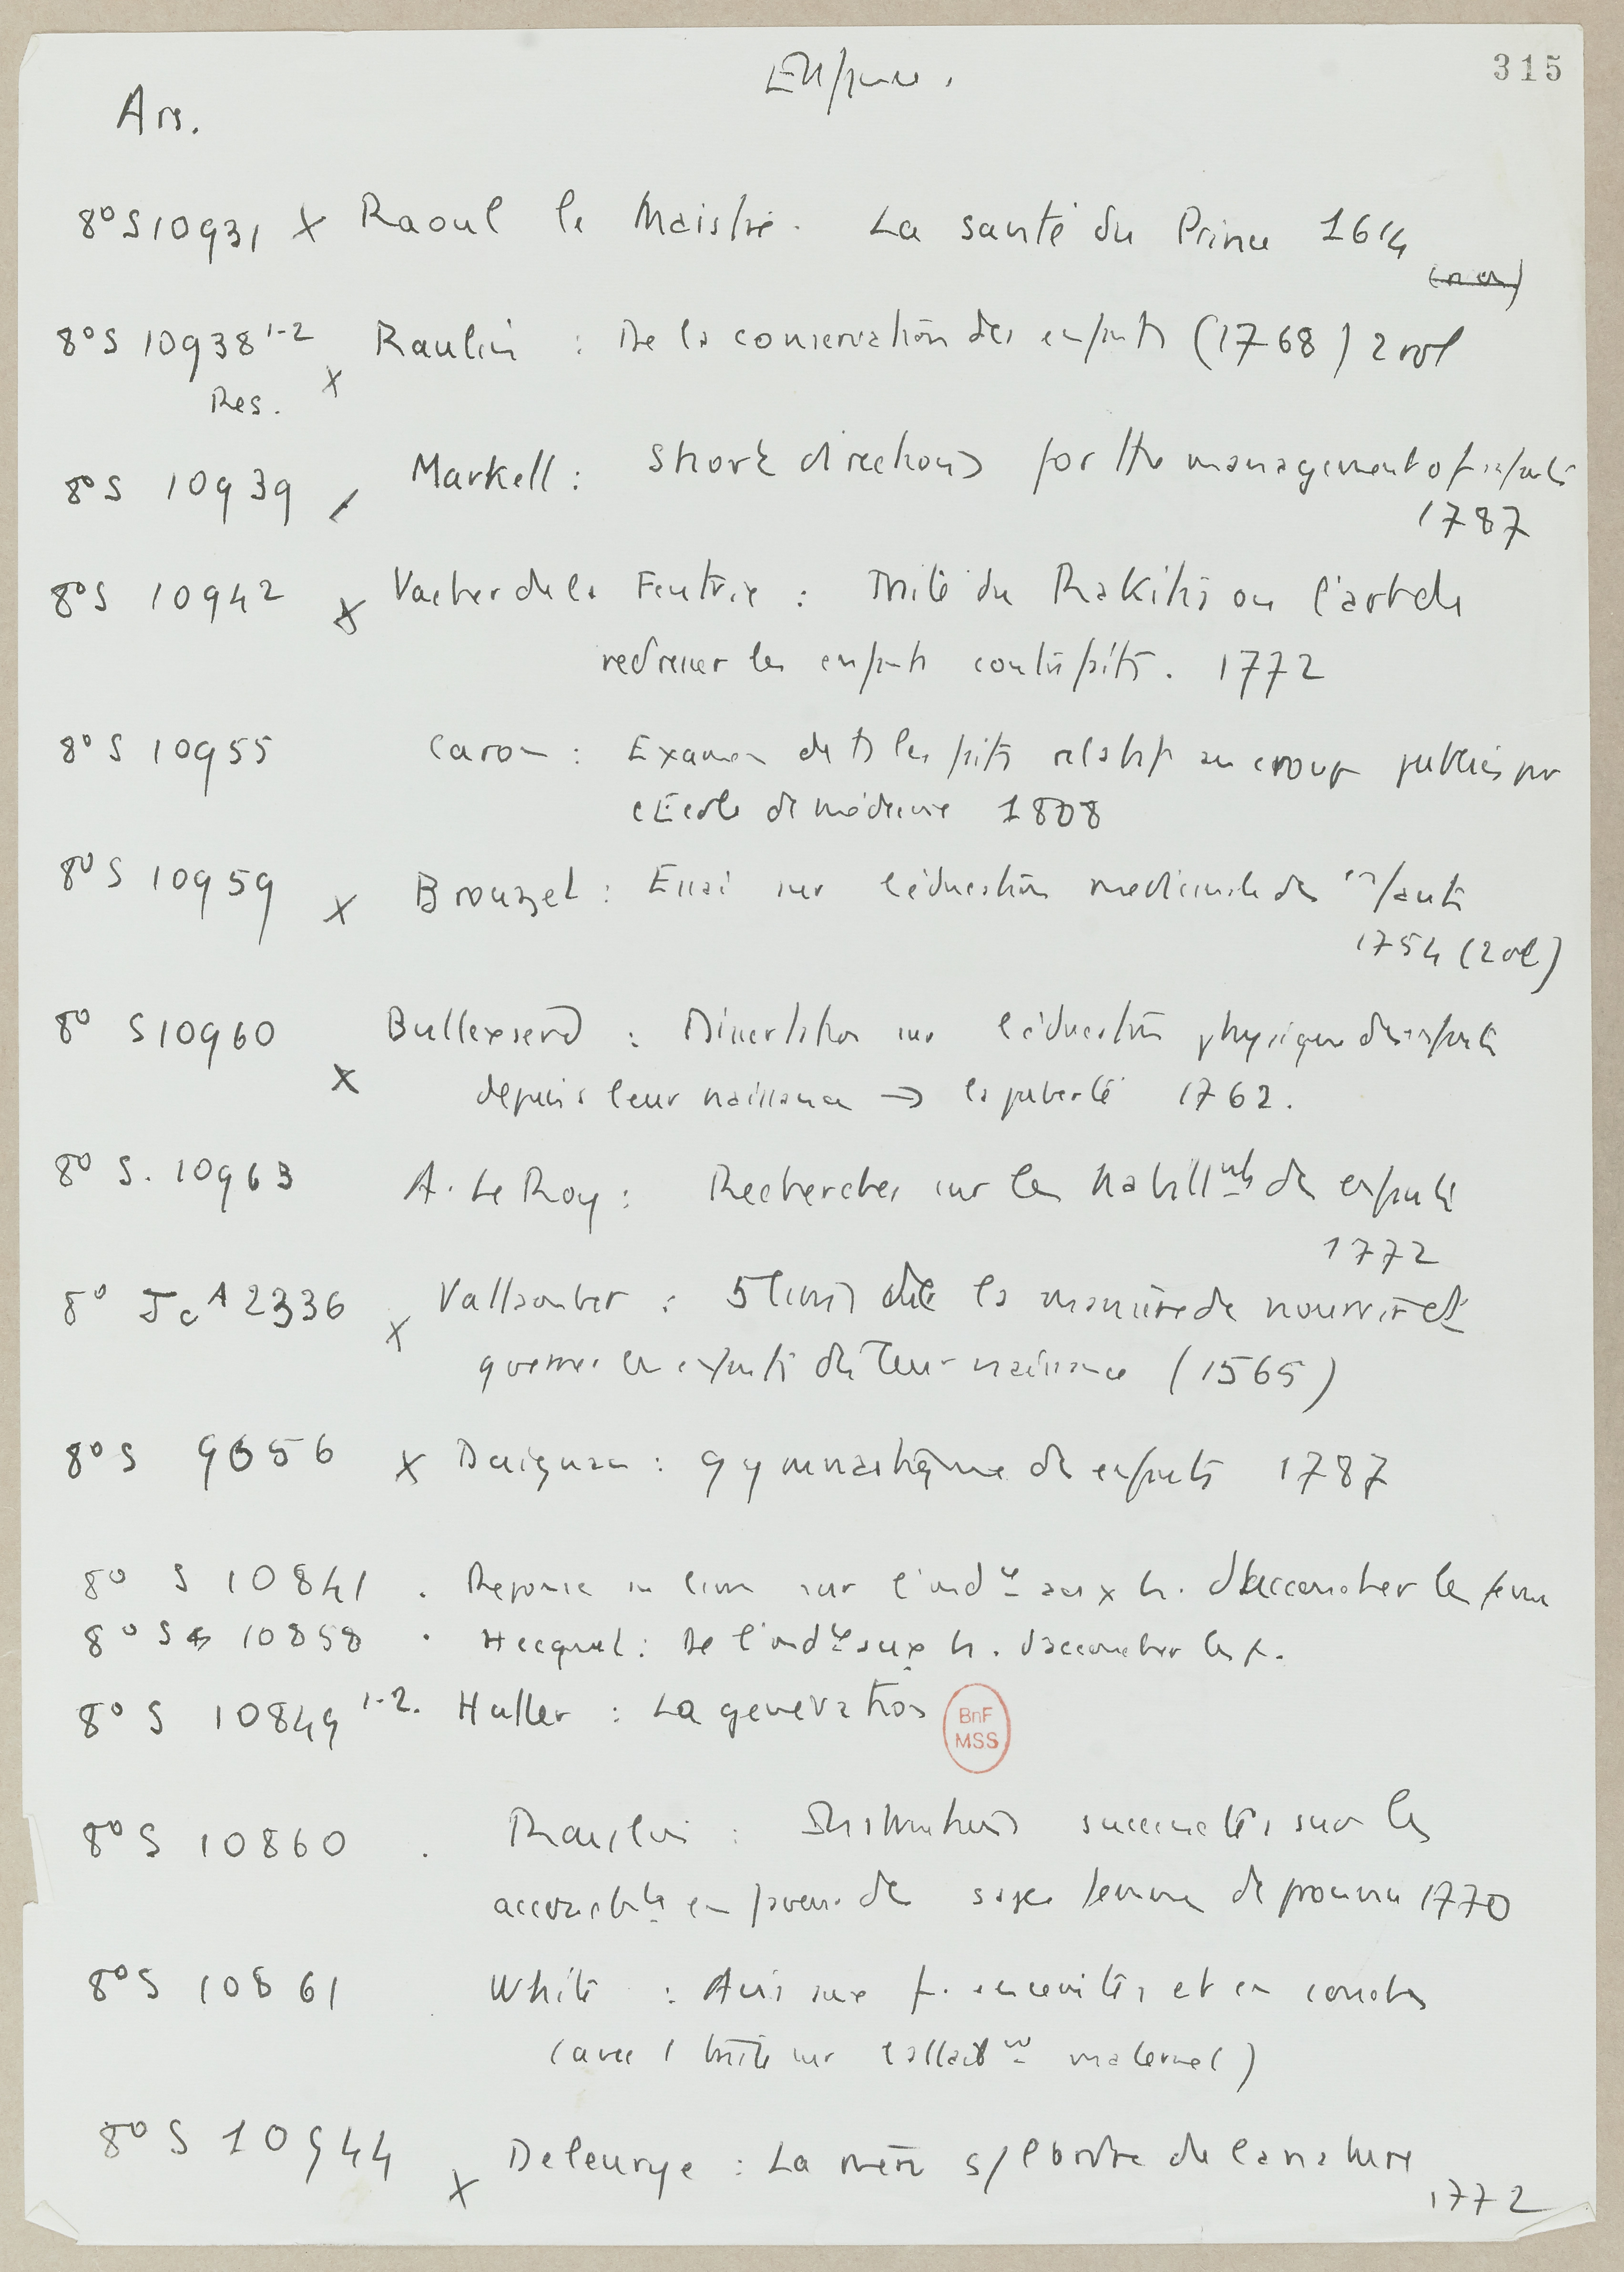 315
Enfance.
Ars.
8° S 10931 x Raoul le Maistre. La santé du Prince 1614
8° S 10938 1-2 x Raulin : De la conservation des enfants (1768) 2 vol
Res.
8° S 10939 Markell : Short directions for the management of infants
1787
8° S 10942 x Vacher de la Feutrie : Traité du Rakitis ou l'art de
redresser les enfants contrefaits. 1772
8° S 10955 Caron : Examen de ts les faits relatifs au croup publiés par
l'Ecole de médecine 1808
8° S 10959 x Brouzet : Essai sur l'éducation médicinale des enfants
1754 (2 vol)
8° S 10960 x Ballexserd : Dissertation sur l'éducation physique des enfants
depuis leur naissance → la puberté 1762.
8° S. 10963 A. Le Roy : Recherches sur les habillmts des enfants
1772
8° Jc A 2336 x Vallambert : 5 livres de la manière de nourrir et
gouverner les enfants dès leur naissance (1565)
8° S 9656 x Daignan : gymnastique des enfants 1787
8° S 10841 . Reponse au livre sur l'indce aux h. d'accoucher les fem
8° S 10858 . Hecquet : De l'indce aux h. d'accoucher les f.
8° S 10849 1-2. Haller : La generation
BnF
MSS
8° S 10860 . Raulin : Instructions succinctes sur les
accouchts en faveur des sages femmes de province 1770
8° S 10861 . White : Avis aux f. enceintes et en couches
(avec 1 traité sur l'allaitmt maternel)
8° S 10944 x Deleurye : La mère s/ l'ordre de la nature
1772